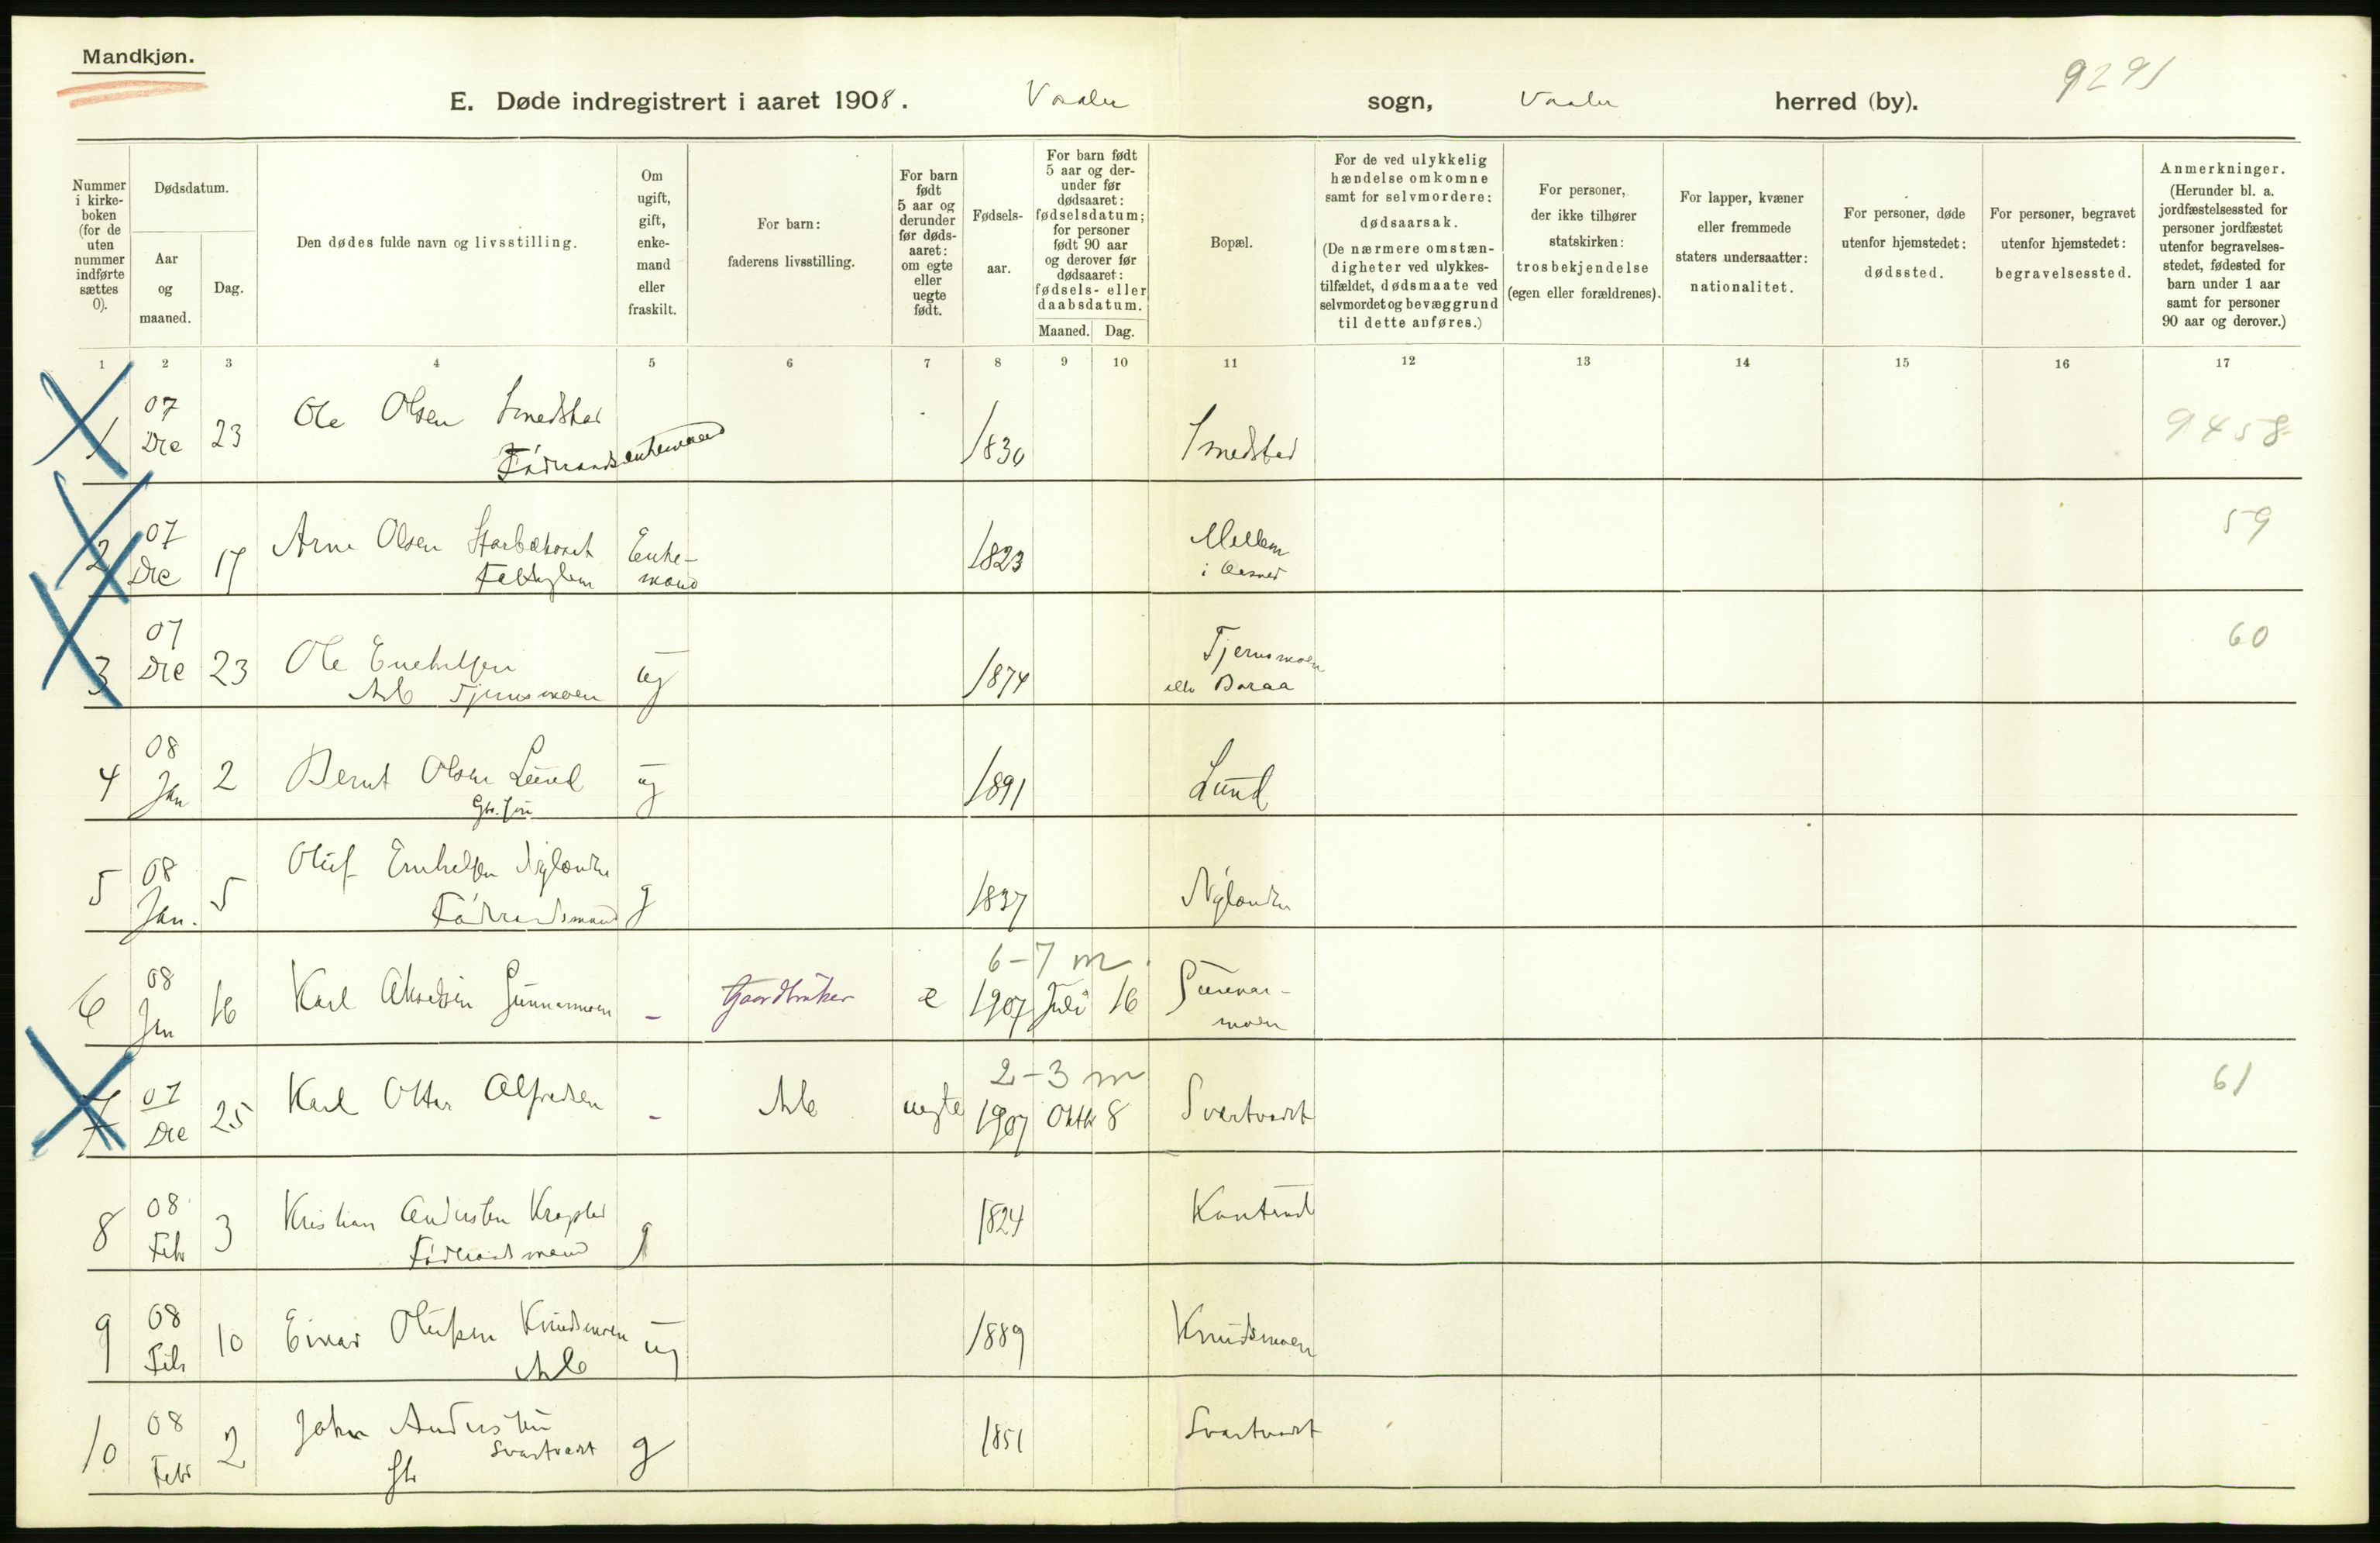 Mandkjøn.
9291
E. Døde indregistrert i aaret 1908. Vaaler sogn, Vaaler herred (by).
Nummer i kirkeboken (for de uten nummer indførte sættes 0).
Dødsdatum.
Aar og maaned.
Dag.
Den dødes fulde navn og livsstilling.
Om ugift, gift, enkemand eller fraskilt.
For barn: faderens livsstilling.
For barn født 5 aar og derunder før dødsaaret: om egte eller uegte født.
Fødselsaar.
For barn født 5 aar og derunder før dødsaaret: fødselsdatum; for personer født 90 aar og derover før dødsaaret: fødsels- eller daabsdatum.
Maaned. Dag.
Bopæl.
For de ved ulykkelig hændelse omkomne samt for selvmordere: dødsaarsak. (De nærmere omstændigheter ved ulykkestilfældet, dødsmaate ved selvmordet og bevæggrund til dette anføres.)
For personer, der ikke tilhører statskirken: trosbekjendelse (egen eller forældrenes).
For lapper, kvæner eller fremmede staters undersaatter: nationalitet.
For personer, døde utenfor hjemstedet: dødssted.
For personer, begravet utenfor hjemstedet: begravelsessted.
Anmerkninger. (Herunder bl. a. jordfæstelsessted for personer jordfæstet utenfor begravelsesstedet, fødested for barn under 1 aar samt for personer 90 aar og derover.)
1 2 3 4 5 6 7 8 9 10 11 12 13 14 15 16 17
1 07 Dec 23 Ole Olsen Smedstad 1830 Smedstad 9458
Føderaads enkemand
2 07 Dec 17 Arne Olsen Enke- 1823 Mellem 59
mand i
3 07 Dec 23 Ole Enehelsen ug 1874 Tjernsmoen 60
Arb Tjernsmoen eller Baraa
4 08 Jan 2 Bernt Olsen Lund ug 1891 Lund
Gbr. søn
5 08 Jan. 5 Oluf Nylænde g 1837 Nylænde
Føderaadsmand
6-7 m
6 08 Jan 16 Karl Akselsen Gunnarmoen - Gaardbruker e 1907 Juli 16 Gunnar-
moen
2-3 m
7 07 Dec 25 Karl Otter Alfredsen - Arb uegte 1907 Oktb 8 Svartvadt 61
8 08 Feb 3 Kristian Andersen g 1824
Føderaadsmand
9 08 Feb 10 Einar Olufsen Knudsmoen ug 1889 Knudsmoen
Arb
10 08 Feb 2 John Andersen g 1851 Svartvadt
Svartvadt